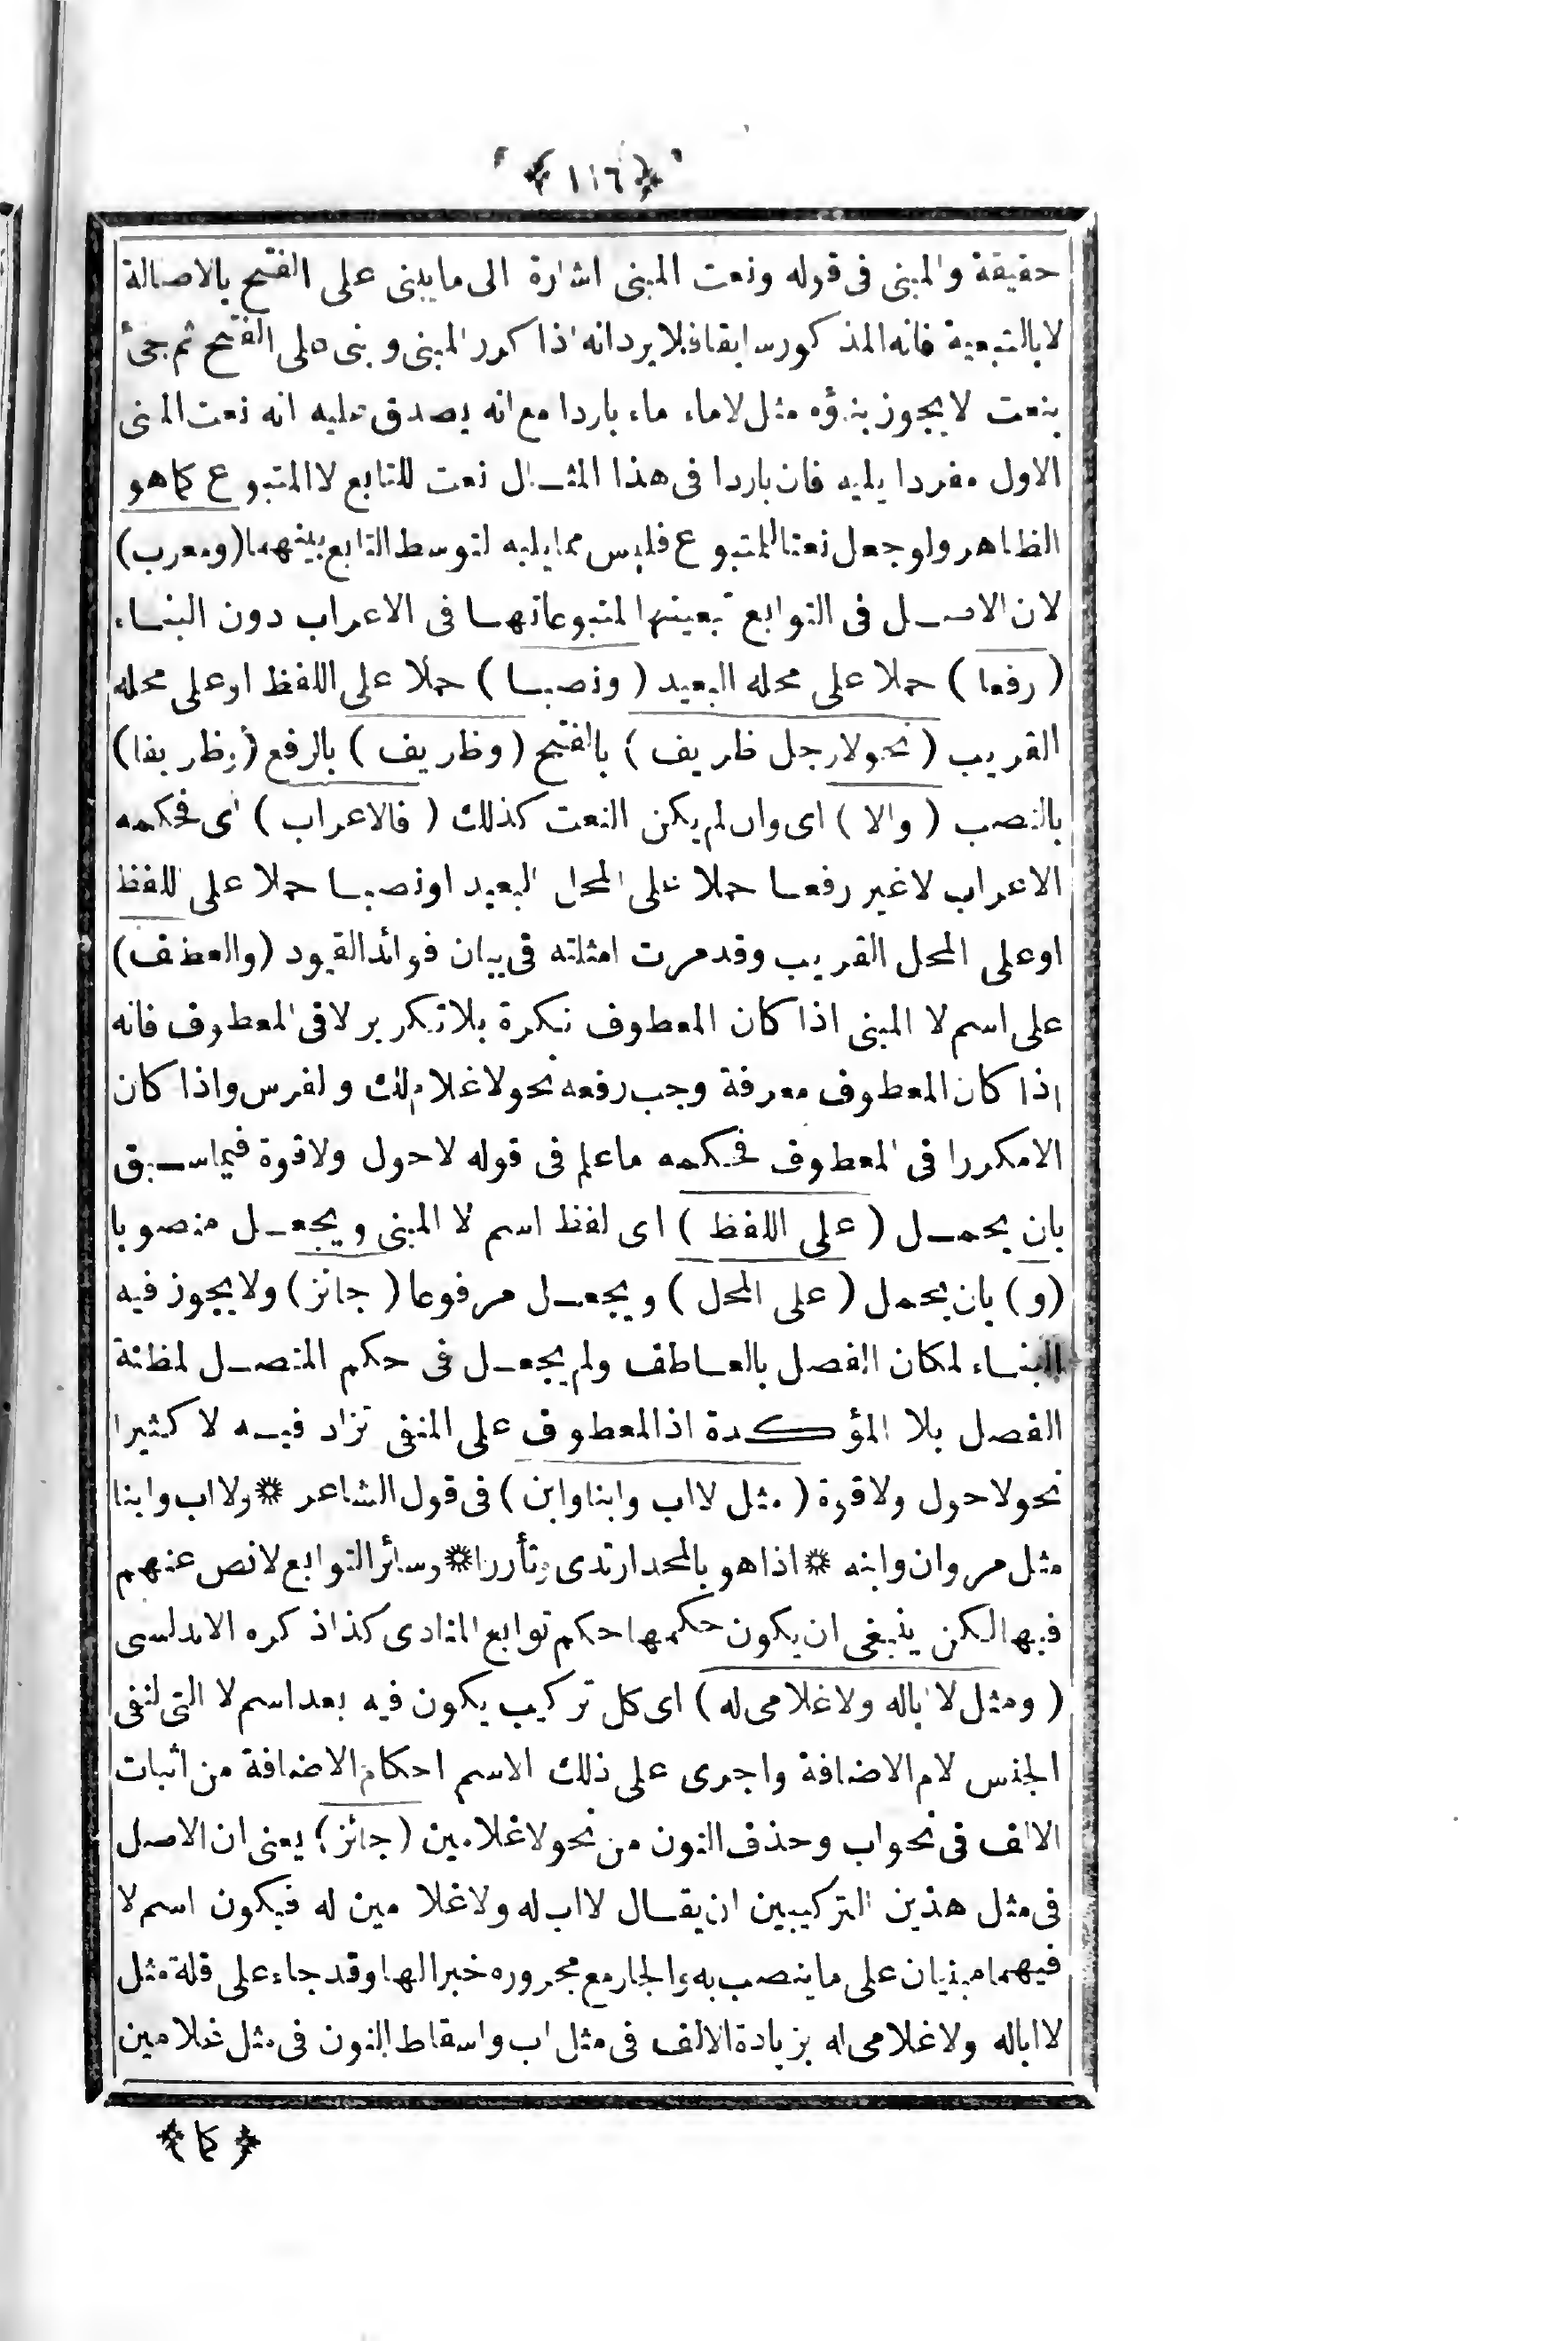 ﴿١١٦﴾
حقيقة والمبنى فى قوله ونعت المبنى اشارة الى مايبنى على الفتح بالاصالة
لا بالتبعية فانه المذكور سابقا فلا يرد انه اذا كرر المبنى وبنى على الفتح ثم جئ
بنعت لا يجوز بناؤه مثل لاماء ماء باردا مع انه يصدق عليه انه نعت المبنى
الاول مفردا يليه فان باردا فى هذا المثال نعت للتابع لا المتبوع كما هو
الظاهر ولو جعل نعتا للمتبوع فليس مما يليه لتوسط التابع بينهما (ومعرب)
لان الاصل فى التوابع تبعيتها لمتبوعاتها فى الاعراب دون البناء
(رفعا) حملا على محله البعيد (ونصبا) حملا على اللفظ او على محله
القريب (نحو لا رجل ظريف) بالفتح (وظريف) بالرفع (وظريفا)
بالنصب (والا) اى وان لم يكن النعت كذلك (فالاعراب) اى فحكمه
الاعراب لا غير رفعا حملا على المحل البعيد او نصبا حملا على اللفظ
او على المحل القريب وقد مرت امثلته فى بيان فوائد القيود (والعطف)
على اسم لا المبنى اذا كان المعطوف نكرة بلا تكرير لا فى المعطوف فانه
اذا كان المعطوف معرفة وجب رفعه نحو لا غلام لك والفرس واذا كان
لا مكررا فى المعطوف فحكمه ما علم فى قوله لا حول ولا قوة فيما سبق
بان يحمل (على اللفظ) اى لفظ اسم لا المبنى ويجعل منصوبا
(و) بان يحمل (على المحل) ويجعل مرفوعا (جائز) ولا يجوز فيه
البناء لمكان الفصل بالعاطف ولم يجعل فى حكم المتصل لمظنة
الفصل بلا المؤكدة اذ المعطوف على المنفى تزاد فيه لا كثيرا
نحو لا حول ولا قوة (مثل لا اب وابنا وابن) فى قول الشاعر * ولا اب وابنا
مثل مروان وابنه * اذا هو بالمجد ارتدى وتأزرا * وسائر التوابع لا نص عنهم
فيها لكن ينبغى ان يكون حكمها حكم توابع المنادى كذا ذكره الاندلسى
(ومثل لا اباله ولا غلامى له) اى كل تركيب يكون فيه بعد اسم لا التى لنفى
الجنس لام الاضافة واجرى على ذلك الاسم احكام الاضافة من اثبات
الالف فى نحو اب وحذف النون من نحو لا غلامين (جائز) يعنى ان الاصل
فى مثل هذين التركيبين ان يقال لا اب له ولا غلامين له فيكون اسم لا
فيهما مبنيان على ما ينصب به والجار مع مجروره خبرا لها وقد جاء على قلة مثل
لا اباله ولا غلامى له بزيادة الالف فى مثل اب واسقاط النون فى مثل غلامين
﴿كما﴾